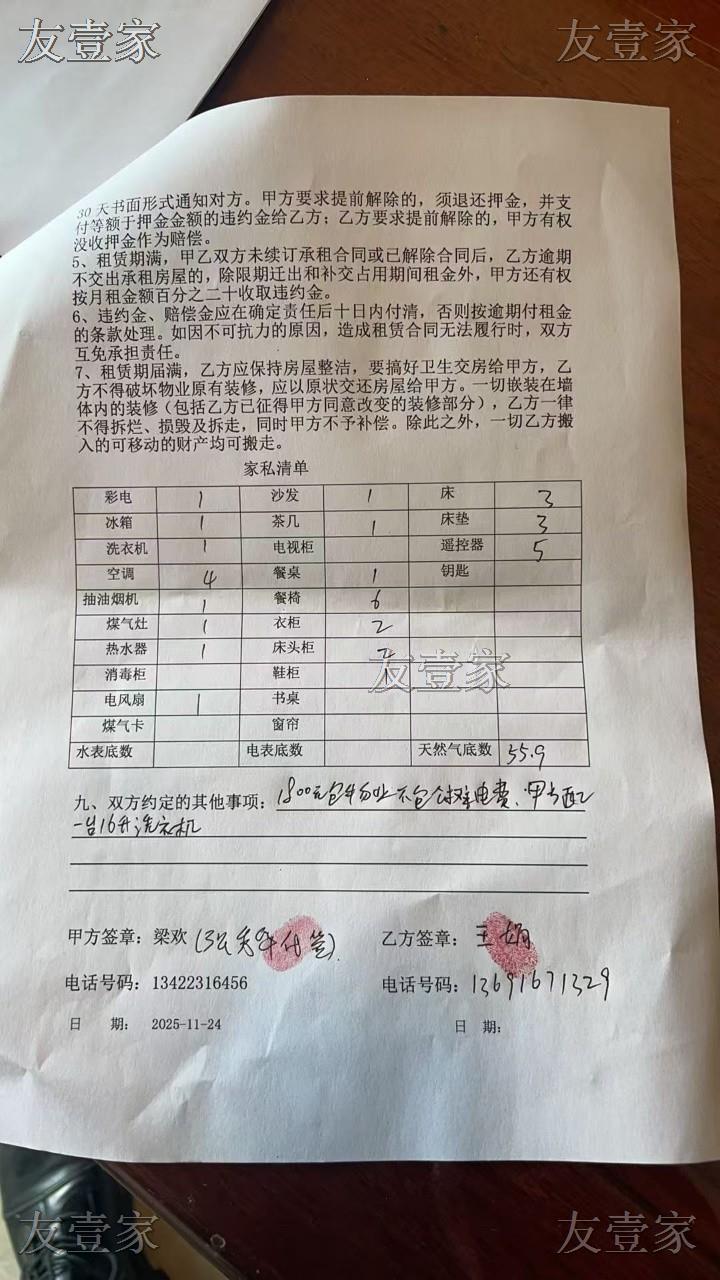 友壹家 友壹家
30天书面形式通知对方。甲方要求提前解除的，须退还押金，并支
付等额于押金金额的违约金给乙方；乙方要求提前解除的，甲方有权
没收押金作为赔偿。
5、租赁期满，甲乙双方未续订承租合同或已解除合同后，乙方逾期
不交出承租房屋的，除限期迁出和补交占用期间租金外，甲方还有权
按月租金额百分之二十收取违约金。
6、违约金、赔偿金应在确定责任后十日内付清，否则按逾期付租金
的条款处理。如因不可抗力的原因，造成租赁合同无法履行时，双方
互免承担责任。
7、租赁期届满，乙方应保持房屋整洁，要搞好卫生交房给甲方，乙
方不得破坏物业原有装修，应以原状交还房屋给甲方。一切嵌装在墙
体内的装修（包括乙方已征得甲方同意改变的装修部分），乙方一律
不得拆烂、损毁及拆走，同时甲方不予补偿。除此之外，一切乙方搬
入的可移动的财产均可搬走。
家私清单
彩电 1 沙发 1 床 3
冰箱 1 茶几 1 床垫 3
洗衣机 1 电视柜 遥控器 5
空调 4 餐桌 1 钥匙
抽油烟机 1 餐椅 6
煤气灶 1 衣柜 2
热水器 1 床头柜 2
消毒柜 鞋柜 1
友壹家
电风扇 1 书桌
煤气卡 窗帘
水表底数 电表底数 天然气底数 55.9
九、双方约定的其他事项：1800元包物业不包水电费，甲方配
一台16升洗衣机
甲方签章：梁欢（代签） 乙方签章：王娟
电话号码：13422316456 电话号码：13691671329
日 期： 2025-11-24 日 期：
友壹家 友壹家